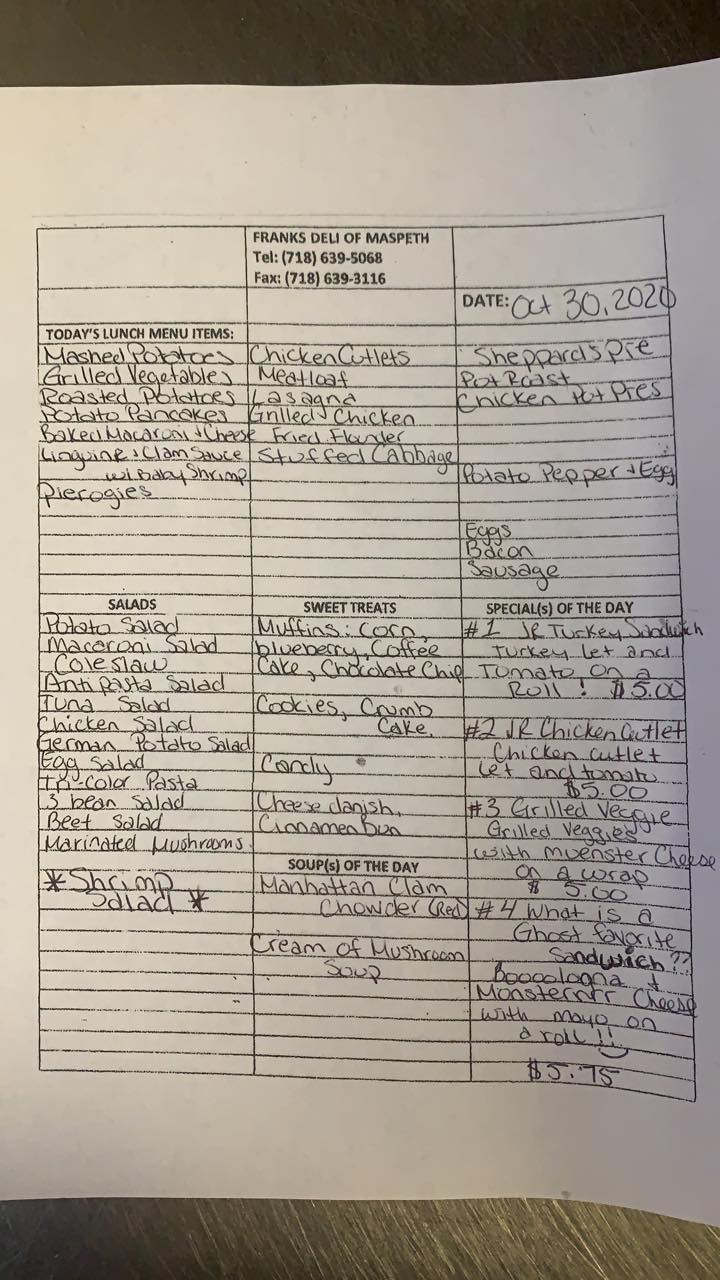 FRANKS DELI OF MASPETH
Tel: (718) 639-5068
Fax: (718) 639-3116
DATE: Oct 30, 2020
TODAY'S LUNCH MENU ITEMS:
Mashed Potatoes
Grilled Vegetables
Roasted Potatoes
Potato Pancakes
Baked Macaroni + Cheese
Linguine + Clam Sauce
w/ Baby Shrimp
Pierogies
Chicken Cutlets
Meatloaf
Lasagna
Grilled Chicken
Fried Flounder
Stuffed Cabbage
Sheppard's Pie
Pot Roast
Chicken Pot Pies
Potato Pepper + Egg
Eggs
Bacon
Sausage
SALADS
Potato Salad
Macaroni Salad
Coleslaw
Anti pasta Salad
Tuna Salad
Chicken Salad
German Potato Salad
Egg Salad
Tri-color Pasta
3 bean Salad
Beet Salad
Marinated Mushrooms
*Shrimp
Salad *
SWEET TREATS
Muffins: Corn,
blueberry, Coffee
Cake, Chocolate Chip
Cookies, Crumb
Cake
Candy
Cheese danish,
Cinnamen bun
SOUP(s) OF THE DAY
Manhattan Clam
Chowder (Red)
Cream of Mushroom
Soup
SPECIAL(s) OF THE DAY
#1 JR Turkey Sandwich
Turkey let and
Tomato on a
Roll! $5.00
#2 JR Chicken Cutlet
Chicken cutlet
Let and tomato
$5.00
#3 Grilled Veggie
Grilled Veggies
with muenster Cheese
on a wrap
$ 5.00
#4 What is a
Ghost favorite
Sandwich??
Booooologna +
Monsterrrr Cheese
with mayo on
a roll!!
$5.75